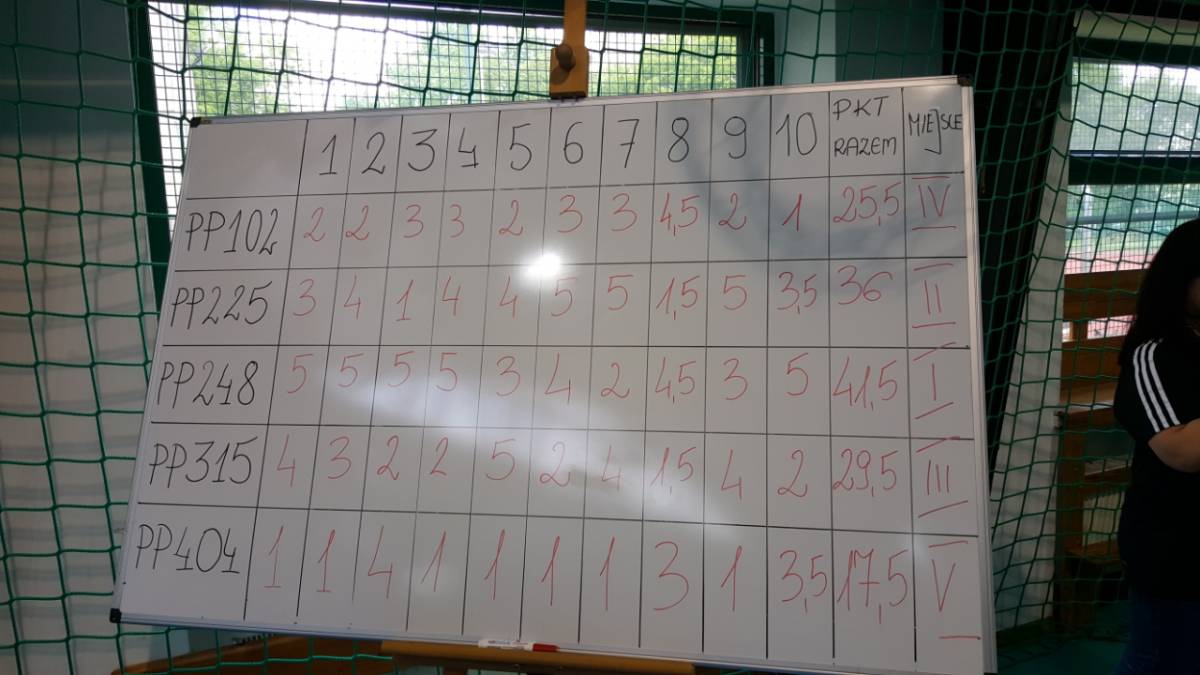 1 2 3 4 5 6 7 8 9 10 PKT RAZEM MIEJSCE
PP102 2 2 3 3 2 3 3 4,5 2 1 25,5 IV
PP225 3 4 1 4 4 5 5 1,5 5 3,5 36 II
PP248 5 5 5 5 3 4 2 4,5 3 5 41,5 I
PP315 4 3 2 2 5 2 4 1,5 4 2 29,5 III
PP404 1 1 4 1 1 1 1 3 1 3,5 17,5 V